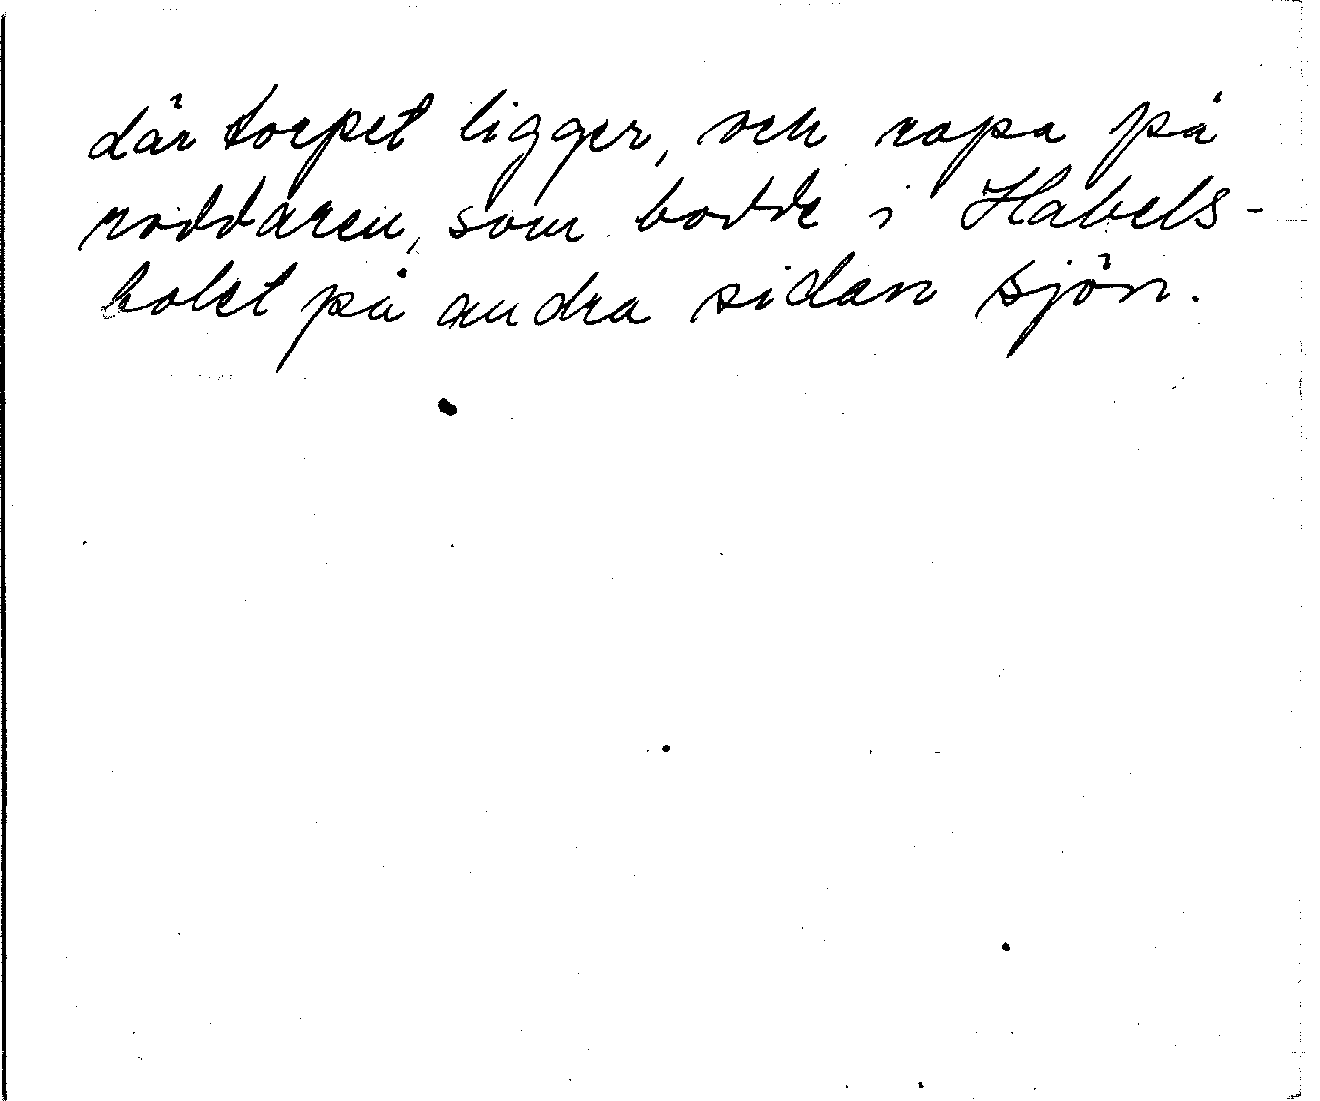 där torpet ligger, och ropa på
roddaren, som bodde i Habels-
bolet på andra sidan sjön.